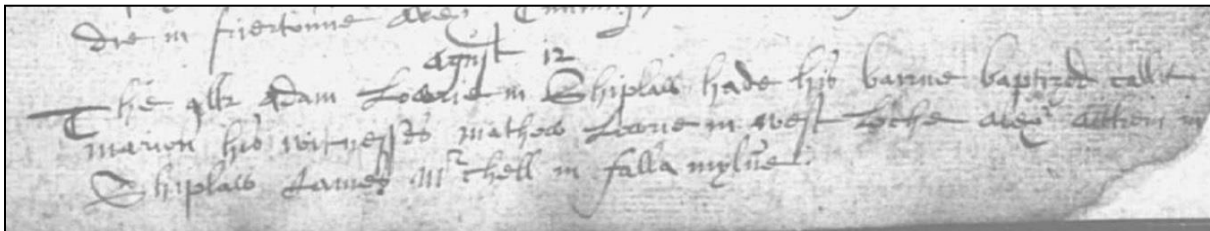 die in friertoune alexr
agust 12
The qlk Adam Lowrie in Shiplaw hade his barne baptized callit
marion his witnesses mathew Lowrie in west Loche alexr in
Shiplaw James Mrchell in falla mylne